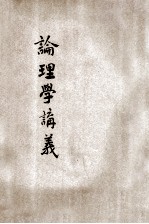 論理學講義